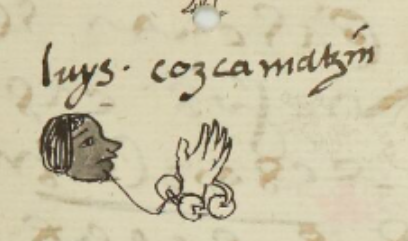 luys. cozcamatzin